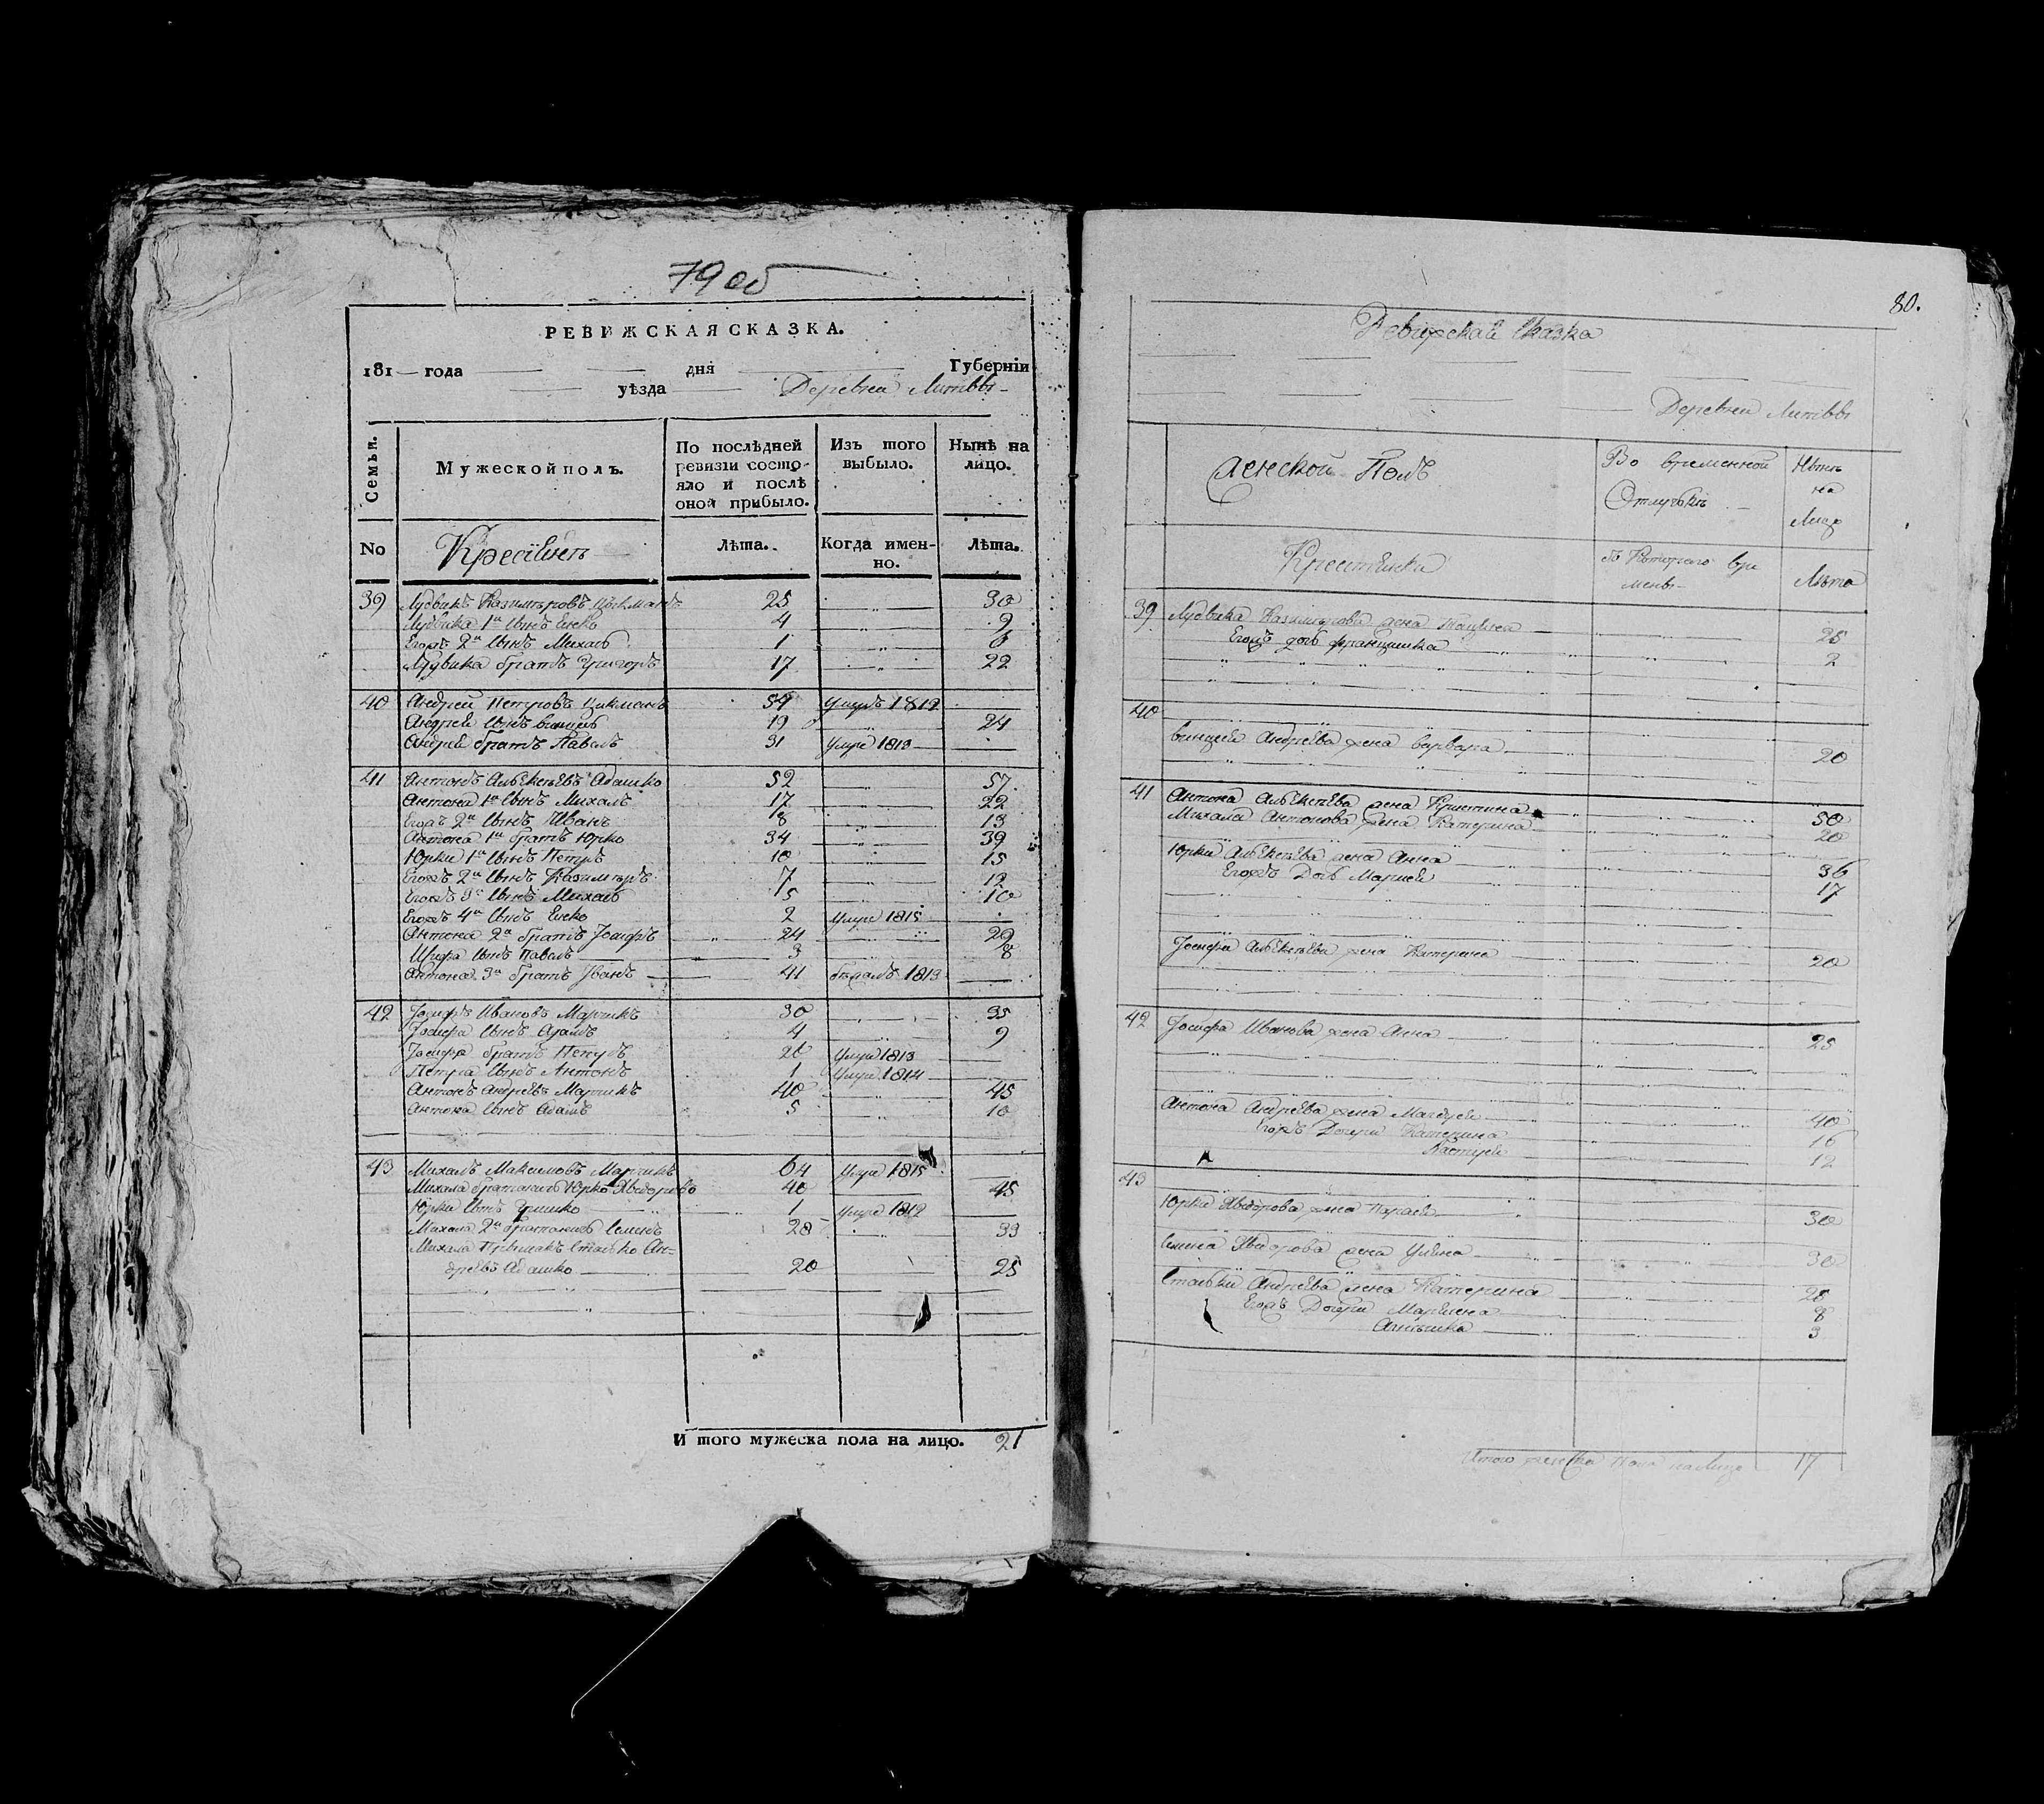 79 об
РЕВИЖСКАЯ СКАЗКА.
181 — года — — дня — Губерніи
— уѣзда — Деревни Литвы
Семьи.
Мужеской полъ.
По послѣдней ревизіи состояло и послѣ оной прибыло.
Изъ того выбыло.
Нынѣ на лицо.
No
Лѣта.
Когда именно.
Лѣта.
39 Лудвикъ Казимѣровъ 25 30
Лудвика 1й сынъ Еско 4 9
Егожъ 2й сынъ Михалъ 1 6
Лудвика братъ Григоръ 17 22
40 Андрей Петровъ 54 умръ 1812
Андрея сынъ Винцесь 19 24
Андрея братъ Павелъ 31 умре 1813
41 Антонъ Алѣксѣевъ Адашко 52 57
Антона 1й сынъ Михалъ 17 22
Егожъ 2й сынъ Иванъ 8 13
Антона 1й братъ Юрко 34 39
Юрки 1й сынъ Петръ 10 15
Егожъ 2й сынъ Казимѣръ 7 12
Егожъ 3й сынъ Михалъ 5 10
Егожъ 4й сынъ Еско 2 умре 1815
Антона 2й братъ Іосифъ 24 29
сынъ Павелъ 3 8
Антона 3й братъ Іванъ 41 бежалъ 1813
42 Іосифъ Ивановъ Марчикъ 30 35
Іосифа сынъ Адамъ 4 9
Іосифа братъ Петръ 26 умре 1813
Петра сынъ Антонъ 1 умре 1814
Антонъ Андрѣевъ Марчикъ 40 45
Антона сынъ Адамъ 5 10
43 Михалъ Максимовъ Марчикъ 64 умре 1815
Михала братаничъ Юрко Хведорово 40 45
Юрки сынъ Гришко 1 умре 1812
Михала 2й братаничъ Семенъ 28 33
Михала Примакъ Стасько Ан-
дрѣевъ Адашко 20 25
И того мужеска пола на лицо. 21
80.
Ревижская сказка
Деревни Литвы
Женской Полъ
Во временной Отлучкѣ
Нынѣ на Лицо
Крестьянки
Съ Котораго времени
Лѣта
39 Лудвика Казимѣрова жена 25
Егожъ дочь Францишка 2
40
Винцеся Андрѣева жена Варвара 20
41 Антона Алѣксѣева жена Криштина 50
Михала Антонова жена Катерина 20
Юрки Алѣксѣева жена Анна 36
Егожъ Дочь Марися 17
Іосифа Алѣксѣева жена Катерина 20
42 Іосифа Иванова жена Анна 25
Антона Андрѣева жена 40
Егожъ Дочери Катерина 16
Настуся 12
43
Юрки Хведорова жена Парася 30
Семена Хведорова жена Уляна 30
Стаськи Андрѣева жена Катерина 28
Егожъ Дочери Марьяна 8
3
Итого женска пола на лицо 17